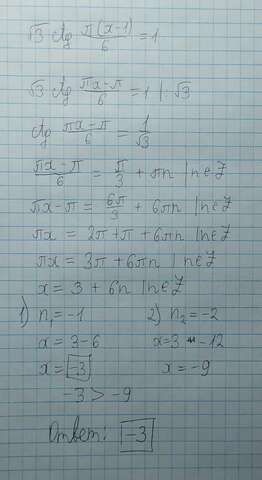 √3 ctg π(x-1)/6 = 1
√3 ctg πx-π/6 = 1 | ·√3
ctg πx-π/6 = 1/√3
πx-π/6 = π/3 + πn | n∈Z
πx-π = 6π/3 + 6πn | n∈Z
πx = 2π+π + 6πn | n∈Z
πx = 3π + 6πn | n∈Z
x = 3 + 6n | n∈Z
1) n₁ = -1 2) n₂ = -2
x = 3-6 x = 3 -12
x = -3 x = -9
-3 > -9
Ответ: -3